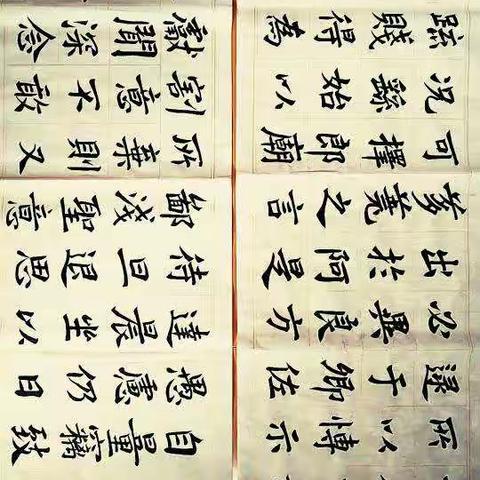 所以博示
逮于卿佐
必異良方
出於阿是
芻蕘之言
可擇郎廟
况繇始以
踈賤得為
自量竊致
愚慮仍日
達晨坐以
待旦退思
鄙淺聖意
所棄則又
割意不敢
獻聞深念